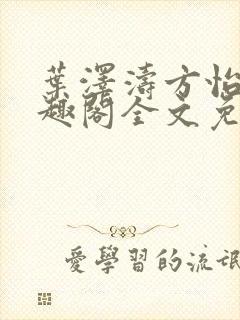 葉澤濤方怡
趣閣全文免
愛學習的流氓